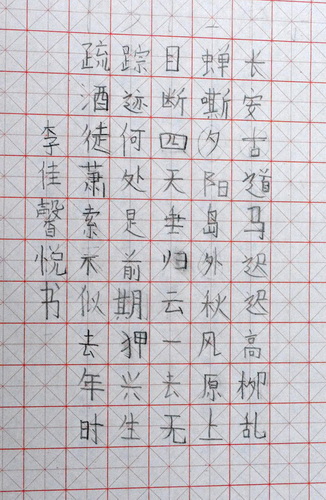 长安古道马迟迟高柳乱
蝉嘶夕阳岛外秋风原上
目断四天垂归云一去无
踪迹何处是前期狎兴生
疏酒徒萧索不似去年时
李佳馨悦书